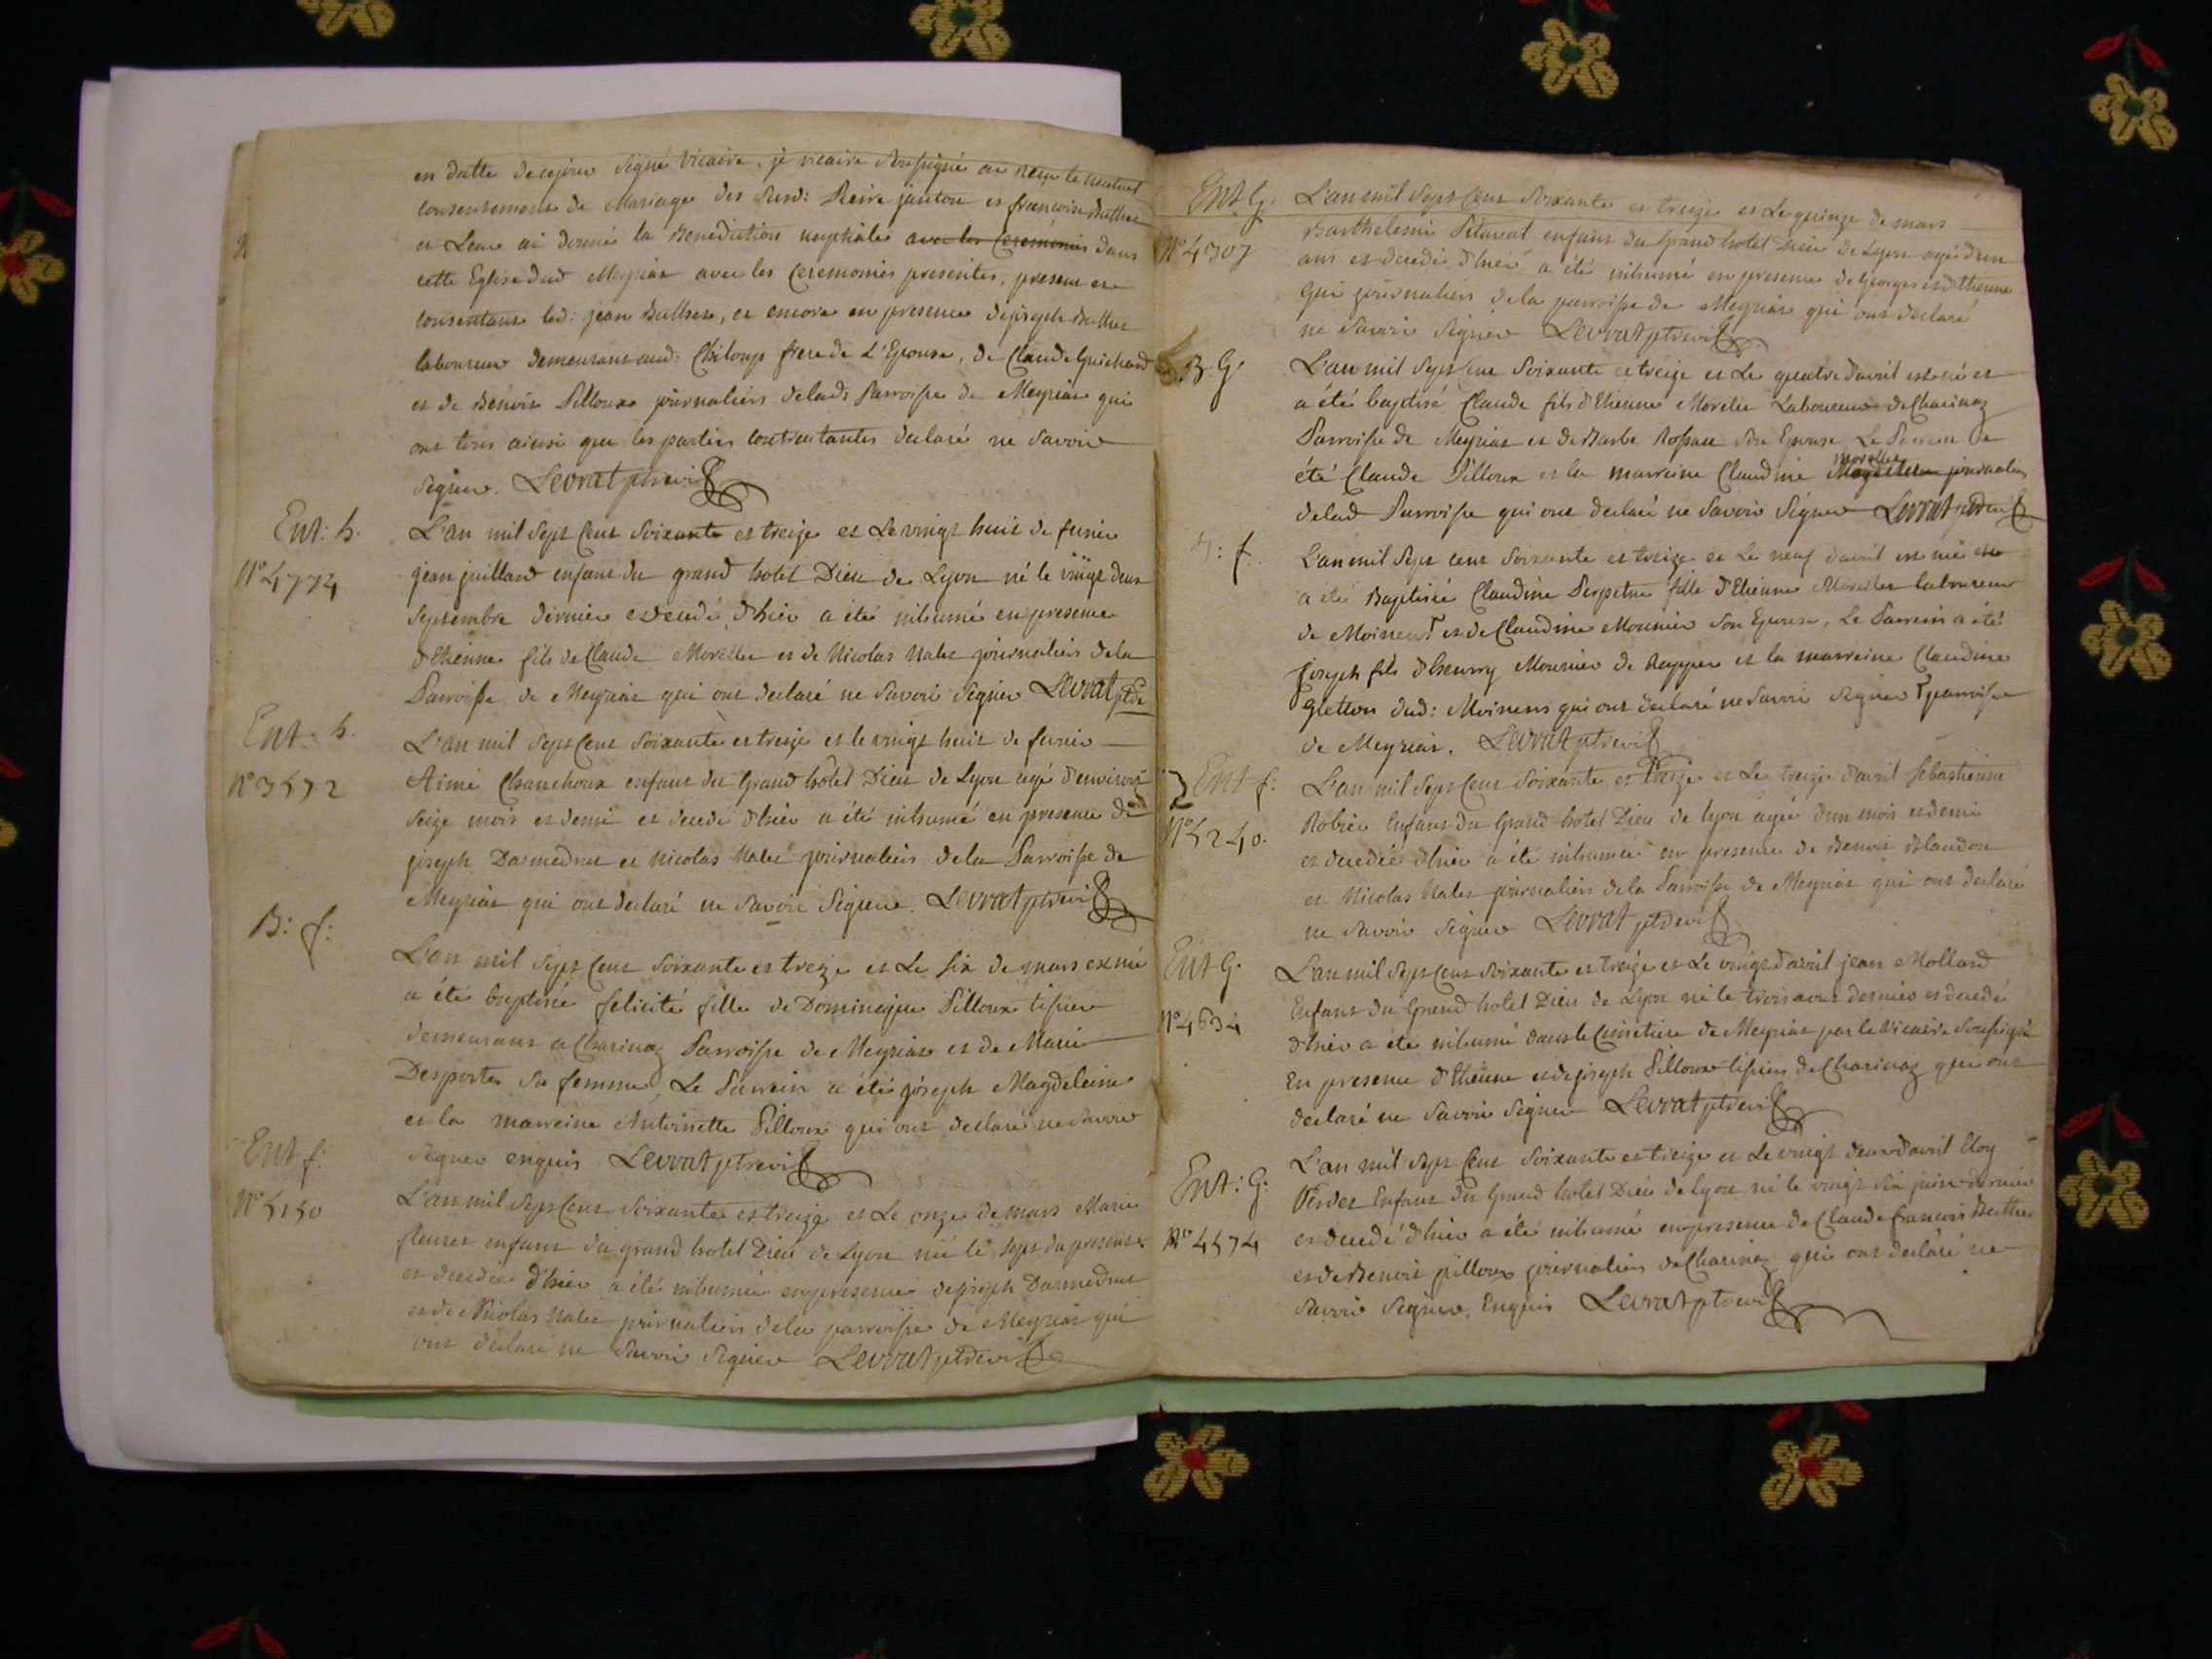 en datte de ce jour signé Vicaire. je vicaire soussigné ai reçu le mutuel
consentement de Mariage des susd: Pierre janton et francoise Buthier
et Leur ai donné la Benediction nuptiale avec les Ceremonies dans
cette Eglise dud Meyriat avec les Ceremonies presentes, present et
consentant led: jean Buthier, et encore en presence de joseph Buthier
laboureur demeurant aud: Chiloup frere de L'Epouse, de Claude Guichard
et de Benoit Pilloux journaliers delad: Parroisse de Meyriat qui
ont tous ainsi que les parties contractantes declaré ne savoir
signer. Levrat ptre vic
Ent: h.
N° 4774
L'an mil sept Cent soixante et treize et Le vingt huit de fevrier
jean juillard enfant du grand hotel Dieu de Lyon né le vingt deux
septembre dernier et decedé d'hier a été inhumé en presence
d'Etienne fils de Claude Morellet et de Nicolas Nalet journaliers dela
Parroisse de Meyriat qui ont declaré ne savoir signer Levrat ptre
Ent: h.
N° 3572
L'an mil sept Cent soixante et treize et le vingt huit de fevrier
Aimé Chanchoux enfant du Grand hôtel Dieu de Lyon agé d'environ
seize mois et demi et decedé d'hier a été inhumé en presence de
joseph Darmedrut et Nicolas Nalet journaliers dela Parroisse de
Meyriat qui ont declaré ne savoir signer. Levrat ptre vic
B: f:
L'an mil sept Cent soixante et treize et Le six de mars est né
a été baptisée felicité fille de Dominique Pilloux tissier
demeurant a Charinaz Parroisse de Meyriat et de Marie
Desportes sa femme, Le Parrein a été joseph Magdeleine
et la marreine Antoinette Pilloux qui ont declaré ne savoir
signer enquis Levrat ptre vic
Ent f:
N° 5150
L'an mil sept Cent soixante et treize et Le onze de mars Marie
fleuret enfant du grand hotel Dieu de Lyon née le sept du present
et decedée d'hier a été inhumée en presence de joseph Darmedrut
et de Nicolas Nalet journaliers dela parroisse de Meyriat qui
ont declaré ne savoir signer Levrat ptre vic
Ent G.
N° 4307
L'an mil sept Cent soixante et treize et Le quinze de mars
Barthelemi Pitavat enfant du Grand hotel Dieu de Lyon agé d'un
ans et decedé d'hier a été inhumé en presence de Georges et d'Etienne
Gui journaliers dela parroisse de Meyriat qui ont declaré
ne savoir signer Levrat ptre vic
B. G.
L'an mil sept Cent soixante et treize et Le quatre d'avril est né et
a été baptisé Claude fils d'Etienne Morelet Laboureur de Charinaz
Parroisse de Meyriat et de Barbe Rossan son Epouse, Le Parrein a
été Claude Pilloux et la marreine Claudine morellet journaliers
delad Parroisse qui ont declaré ne savoir signer Levrat ptre vic
B: f.
L'an mil sept cent soixante et treize et Le neuf d'avril est née et
a été Baptisée Claudine Perpetue fille d'Etienne Morellet laboureur
de Moinens et de Claudine Mounier son Epouse, Le Parrein a été
joseph fils d'henry Mounier de Rappes et la marreine Claudine
Gletton dud: Moinens qui ont declaré ne savoir signer parroisse
de Meyriat. Levrat ptre vic
Ent f:
N° 5240.
L'an mil sept Cent soixante et treize et Le treize d'avril sebastienne
Robier Enfant du Grand hotel Dieu de lyon agée d'un mois et demi
et decedée d'hier a été inhumée en presence de Benoit Blandon
et Nicolas Nalet journaliers dela Parroisse de Meyriat qui ont declaré
ne savoir signer Levrat ptre vic
Ent G.
N° 4634
L'an mil sept Cent soixante et treize et Le vingt d'avril jean Mollard
Enfant du Grand hotel Dieu de Lyon né le trois aout dernier et decedé
d'hier a été inhumé dans le Cimetiere de Meyriat par le Vicaire soussigné
En presence d'Etienne et de joseph Pilloux tissiers de Charinaz qui ont
declaré ne savoir signer Levrat ptre vic
Ent: G.
N° 4574
L'an mil sept Cent soixante et treize et Le vingt deux d'avril Eloy
Verdet Enfant du Grand hotel Dieu de Lyon né le vingt six juin dernier
et decedé d'hier a été inhumé en presence de Claude francois Berthet
et de Benoit pilloux journaliers de Charinaz qui ont declaré ne
savoir signer. Enquis Levrat ptre vic